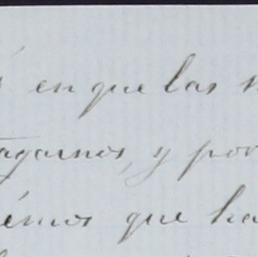 en que las
agamos, y por
émos que ha